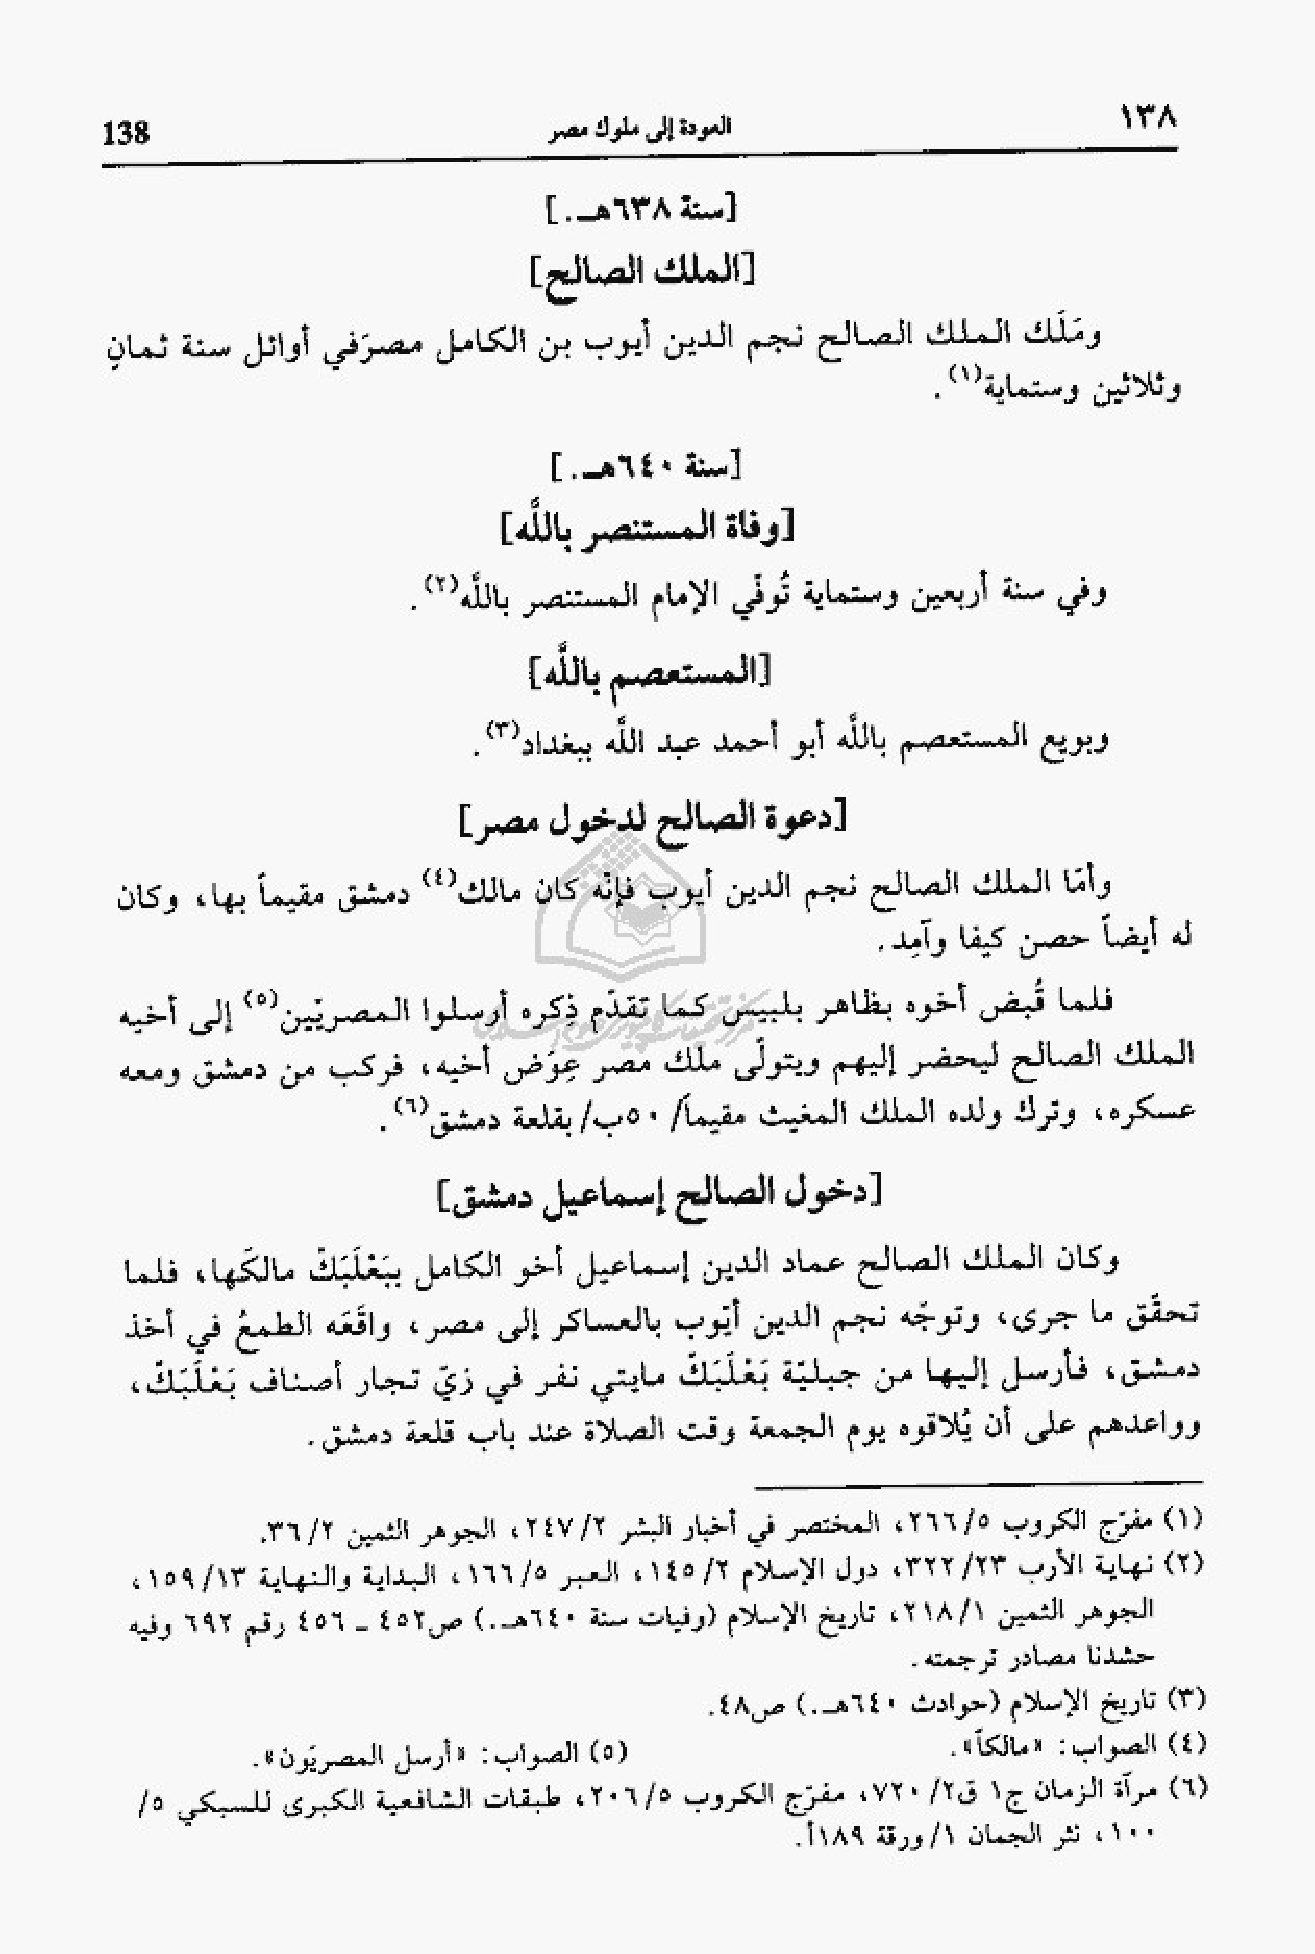 ١٣٨
العودة إلى ملوك مصر
138
[سنة ٦٣٨هـ.]
[الملك الصالح]
ومَلَك الملك الصالح نجم الدين أيوب بن الكامل مصرَفي أوائل سنة ثمانٍ
وثلاثين وستماية(١).
[سنة ٦٤٠هـ.]
[وفاة المستنصر باللَّه]
وفي سنة أربعين وستماية تُوفّي الإمام المستنصر باللَّه(٢).
[المستعصم باللَّه]
وبويع المستعصم باللَّه أبو أحمد عبد اللَّه ببغداد(٣).
[دعوة الصالح لدخول مصر]
وأمّا الملك الصالح نجم الدين أيوب فإنّه كان مالك(٤) دمشق مقيماً بها، وكان
له أيضاً حصن كيفا وآمِد.
فلما قُبض أخوه بظاهر بلبيس كما تقدّم ذِكره أرسلوا المصريّين(٥) إلى أخيه
الملك الصالح ليحضر إليهم ويتولّى ملك مصر عِوَض أخيه، فركب من دمشق ومعه
عسكره، وترك ولده الملك المغيث مقيماً/ ٥٠ب/ بقلعة دمشق(٦).
[دخول الصالح إسماعيل دمشق]
وكان الملك الصالح عماد الدين إسماعيل أخو الكامل ببَعْلَبَكّ مالكَها، فلما
تحقَّق ما جرى، وتوجّه نجم الدين أيّوب بالعساكر إلى مصر، واقَعَه الطمعُ في أخذ
دمشق، فأرسل إليها من جبليّة بَعْلَبَكّ مايتي نفر في زيّ تجار أصناف بَعْلَبَكّ،
وواعدهم على أن يُلاقوه يوم الجمعة وقت الصلاة عند باب قلعة دمشق.
(١) مفرّج الكروب ٥/ ٢٦٦، المختصر في أخبار البشر ٢/ ٢٤٧، الجوهر الثمين ٢/ ٣٦.
(٢) نهاية الأرب ٢٣/ ٣٢٢، دول الإسلام ٢/ ١٤٥، العبر ٥/ ١٦٦، البداية والنهاية ١٣/ ١٥٩،
الجوهر الثمين ١/ ٢١٨، تاريخ الإسلام (وفيات سنة ٦٤٠هـ.) ص٤٥٢ ـ ٤٥٦ رقم ٦٩٢ وفيه
حشدنا مصادر ترجمته.
(٣) تاريخ الإسلام (حوادث ٦٤٠هـ.) ص٤٨.
(٤) الصواب: «مالكاً». (٥) الصواب: «أرسل المصريّون».
(٦) مرآة الزمان ج١ ق٢/ ٧٢٠، مفرّج الكروب ٥/ ٢٠٦، طبقات الشافعية الكبرى للسبكي ٥/
١٠٠، نثر الجمان ١/ ورقة ١٨٩أ.